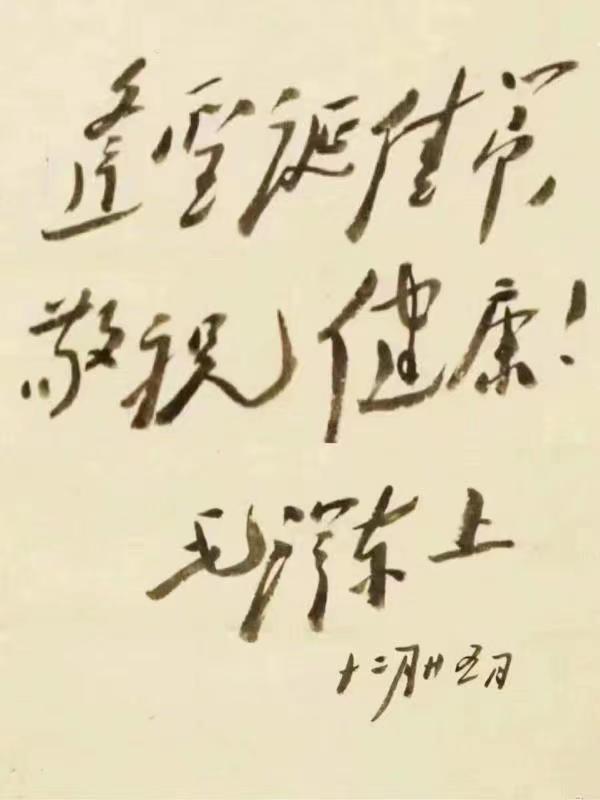 逢聖诞佳节
敬祝健康！
毛泽东上
十二月廿五日